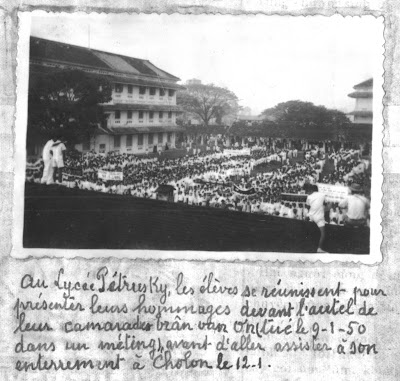 Au Lycée Pétrusky, les élèves se réunissent pour
présenter leurs hommages devant l'autel de
leur camarades trân văn Ơn (tué le 9-1-50
dans un méting), avant d'aller assister à son
enterrement à Cholon le 12.1.